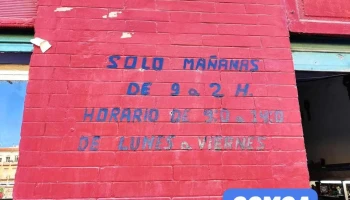 SOLO MAÑANAS
DE 9 a 2 H.
HORARIO DE
DE LUNES a VIERNES